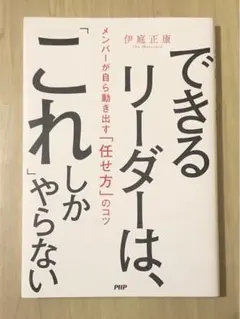 伊庭正康
できる
リーダーは、
「これ」しか
やらない
メンバーが自ら動き出す「任せ方」のコツ
PHP